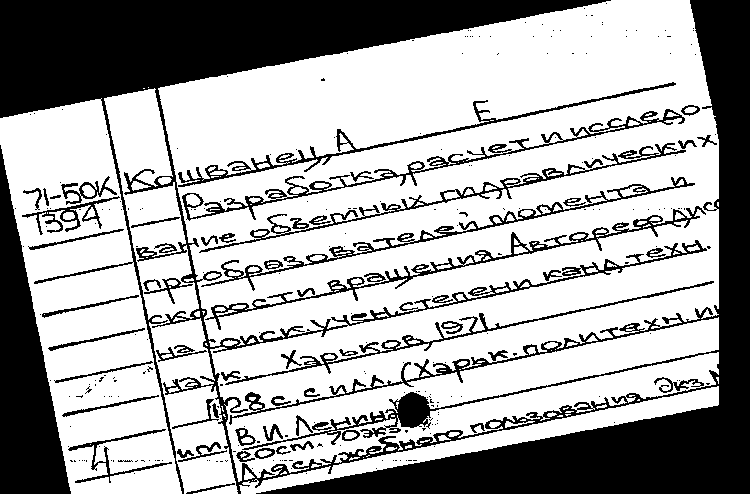 71-50К Кошванец, А Е
1394
Разработка, расчет и исследо-
вание объемных гидравлических
преобразователей момента и
скорости вращения. Автореф. дисс
на соиск. учен. степени канд. техн.
наук. Харьков, 1971.
28 с. с илл. (Харьк. политехн. ин
им. В.И. Ленина
рост. 70 экз.
Для служебного пользования. Экз. №
4